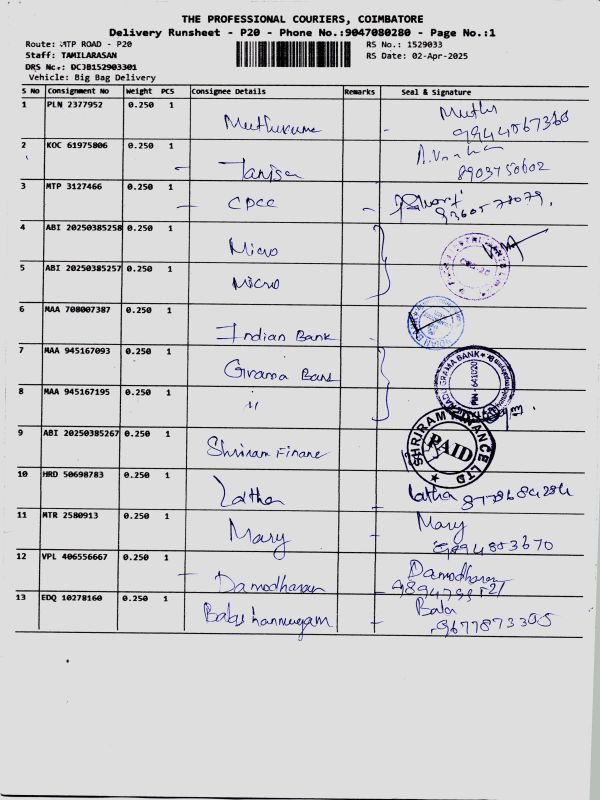 THE PROFESSIONAL COURIERS, COIMBATORE
Delivery Runsheet - P20 - Phone No.:9047080280 - Page No.:1
Route: MTP ROAD - P20
RS No.: 1529033
Staff: TAMILARASAN
RS Date: 02-Apr-2025
DRS No.: DCJB152903301
Vehicle: Big Bag Delivery
S No Consignment No Weight PCS Consignee Details Remarks Seal & Signature
1 PLN 2377952 0.250 1 Muthukuma - Muthu
2 KOC 61975806 0.250 1 - Janisa
8903750602
3 MTP 3127466 0.250 1 - CPCC -
4 ABI 20250385258 0.250 1 Micro
5 ABI 20250385257 0.250 1 Micro
6 MAA 708007387 0.250 1 Indian Bank
7 MAA 945167093 0.250 1 Grama Bank
GRAMA BANK
PIN - 641020
8 MAA 945167195 0.250 1 "
9 ABI 20250385267 0.250 1 Shriram Finane
SHRIRAM FINANCE LTD
PAID
10 HRD 50698783 0.250 1 Latha - Latha
11 MTR 2580913 0.250 1 Mary - Mary
9894853670
12 VPL 406556667 0.250 1 - Damodharan - Damodharan
13 EDQ 10278160 0.250 1 Balashanmugam - Bala
9677873305